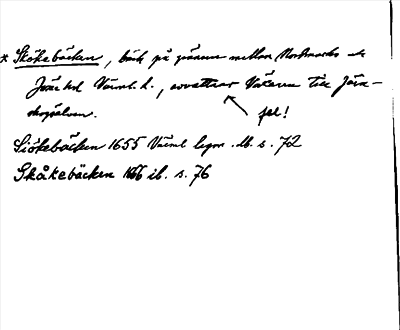 * Skökebäcken, bäck på gränsen mellan Nordmarks o
Jösse hd Värml. l., avvattnar Väkern till Järn-
skogsälven. fel!
Siökebäcken 1655 Värml legn. lb. s. 72
Skåkebäcken 1666 ib. s. 76